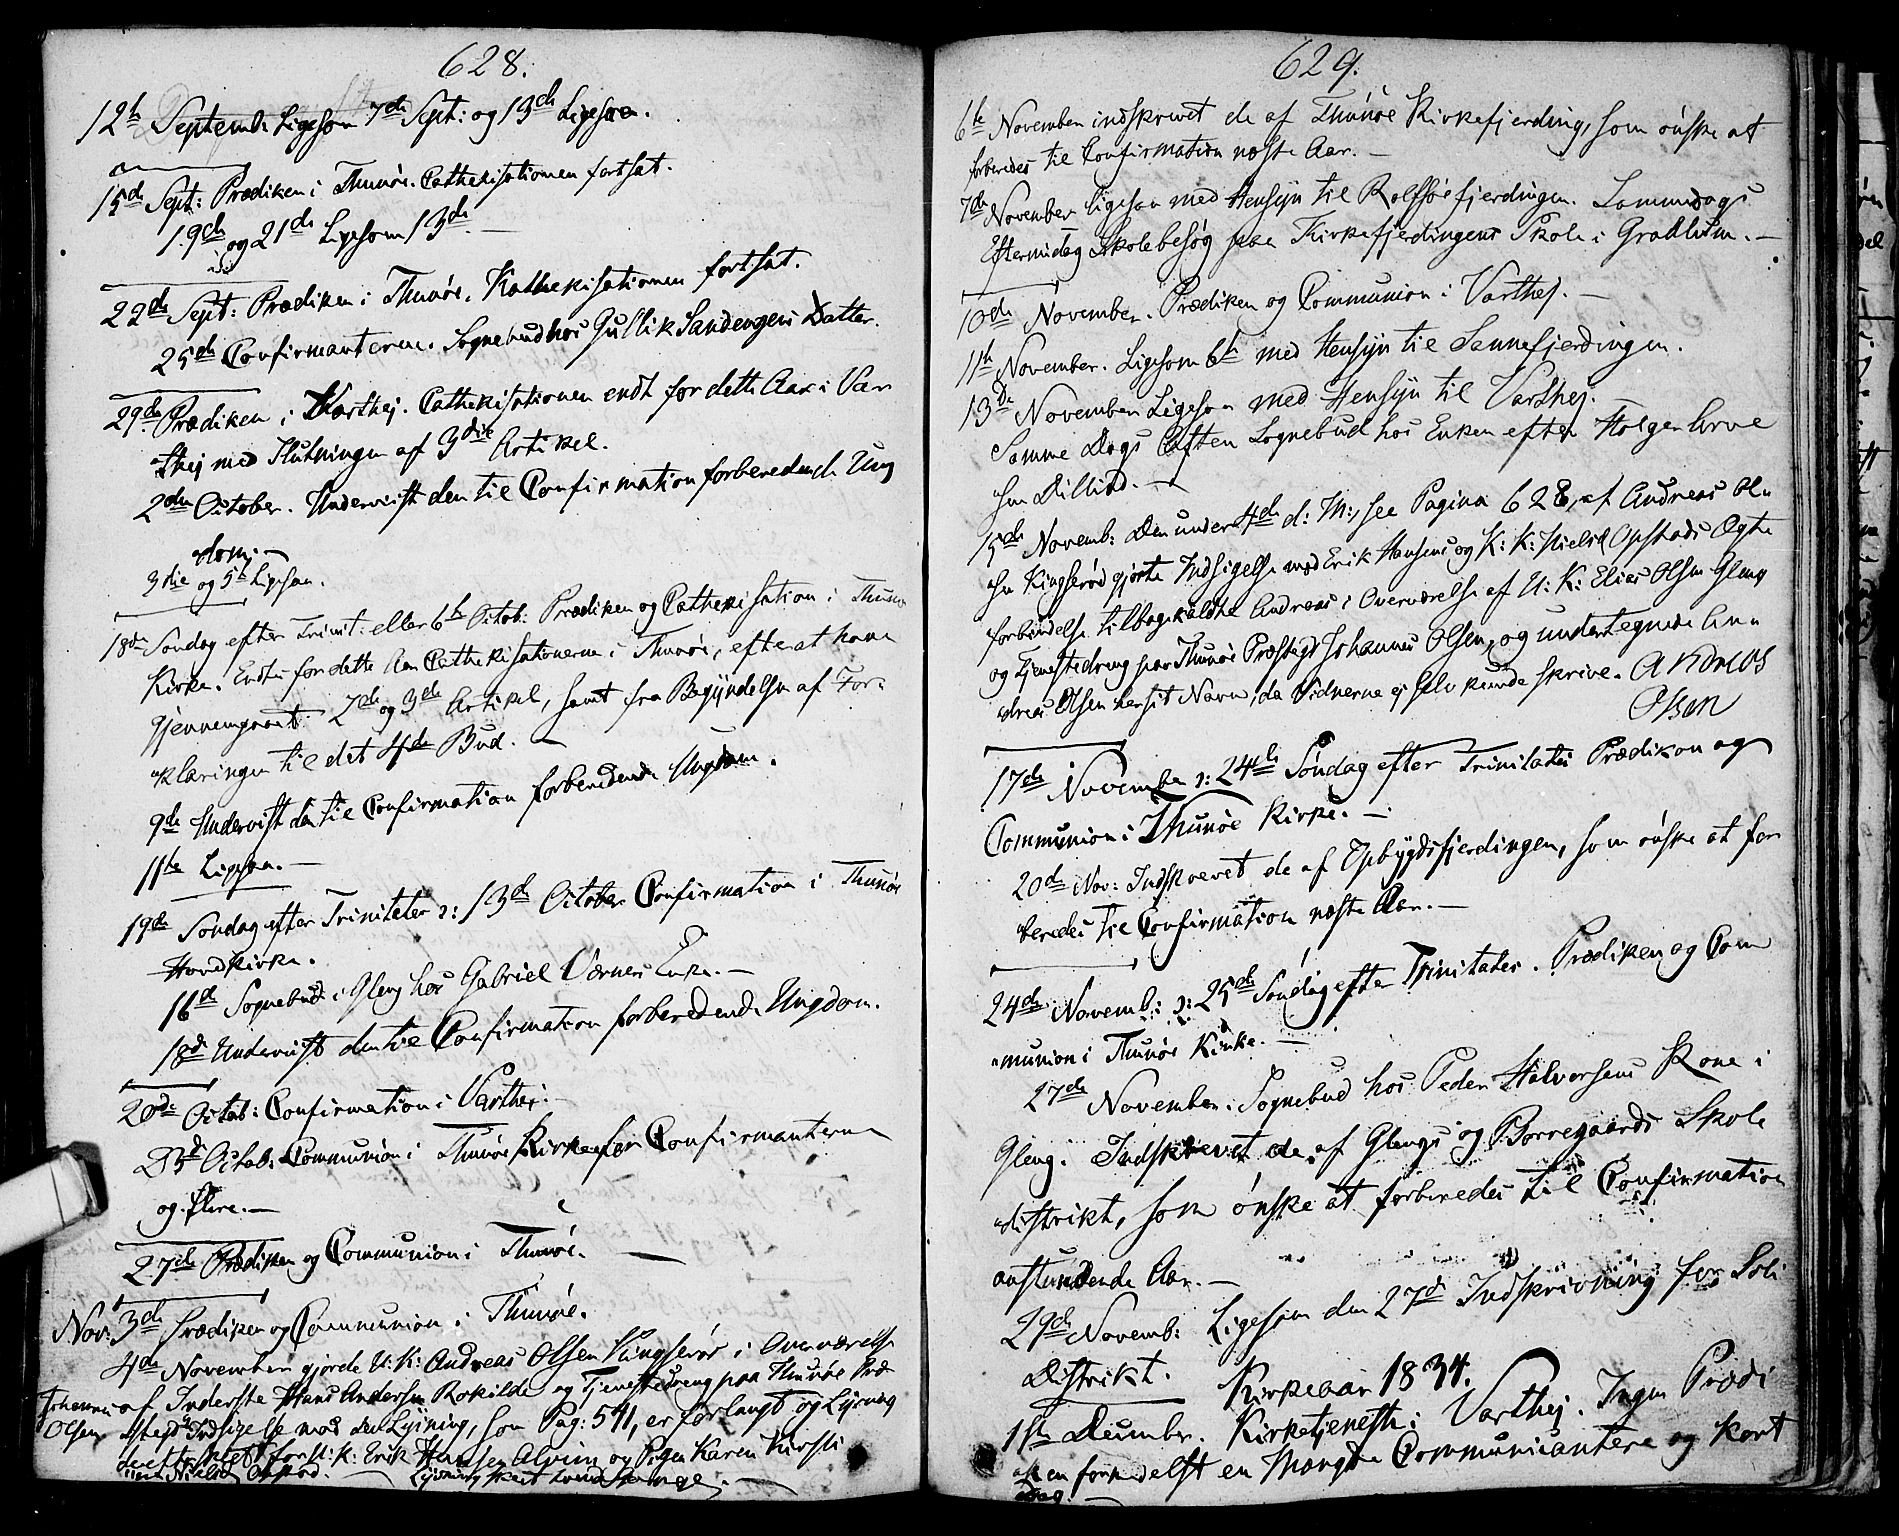 628.
12te Septemb: Ligesom 7de Sept: og 13de Ligesaa.
15de Sept: Prædiken i Thunøe. Cathekisationen fortsat.
19de og 21de Ligesom 13de. —
22de Sept: Prædiken i Thunøe. Kathekisationen fortsat.
25de Confirmanterne. Sognebud hos Gullik Sandengens Datter.
29de Prædiken i Varthej. Cathekisationen endt for dette Aar i Var
thej med Slutningen af 3die Artikel.
2den October. Underviist den til Confirmation forberedende Ung
dom. —
3die og 5te Ligesaa.
18de Søndag efter Trinit: eller 6te Octob: Prædiken og Cathekisation i Thunøe
Kirke. Endte for dette Aar Cathekisationerne i Thunøe, efter at have
gjennemgaaet 2den og 3de Artikel, samt fra Begyndelsen af For-
klaringen til det 4de Bud. —
9de Underviist den til Confirmation forberedende Ungdom.
11te Ligesaa. —
19de Søndag efter Trinitatis ɔ: 13de October Confirmation i Thunøe
Hovedkirke.
16de Sognebud i Gleng hos Gabriel Værnes Enke. —
18de Underviist den til Confirmation forberedende Ungdom.
20de Octob: Confirmation i Varthej. —
23de Octob: Communion i Thunøe Kirke for Confirmanterne
og flere. —
27de Prædiken og Communion i Thunøe. —
Nov: 3de Prædiken og Communion i Thunøe.
4de November gjorde U: K: Andreas Olsen Kingserød i Overværelse
af Inderste Hans Andersen Rokilde og Tjenestedreng paa Thunøe Præ
Johannes
Olsen
stegd Indsigelse mod den Lysning, som Pag: 541, er forlangt og Lysning
derefter skeet for U: K: Erik Hansen Alvim og Pigen Karen Kirsti
ne Nielsd Opstad. — Lysning skeet
629.
6te November indskrevet de af Thunøe Kirkefjerding, som ønske at
forberedes til Confirmation næste Aar. —
7de November ligesaa med Hensyn til Rolfsøefjerdingen. Sammedags
Eftermidag Skolebesøg paa Kirkefjerdingens Skole i Gralum. —
10de November. Prædiken og Communion i Varthej. —
11te November. Ligesom 6te med Hensyn til Sannefjerdingen.
13de November Ligesaa med Hensyn til Varthej.
Samme Dags Aften Sognebud hos Enken efter Holger Arve
sen Dillied. —
15de Novemb: Den under 4de d: M:, see Pagina 628, af Andreas Ol-
sen Kingserød gjorte Indsigelse mod Erik Hansens og K: K: Nielsd Opstads Ægte
forbindelse tilbagekaldte Andreas i Overværelse af U: K: Elias Olsen Gleng
og Tjenestedreng paa Thunøe Præstegd Johannes Olsen, og undertegnede An-
dreas Olsen her sit Navn, da Vidnerne ej selv kunde skrive. Andreas
Olsen
17de November ɔ: 24de Søndag efter Trinitatis Prædiken og
Communion i Thunøe Kirke. —
20de Nov: Indskrevet de af Opbygdsfjerdingen, som ønske at for
beredes til Confirmation næste Aar. —
24de Novemb: ɔ: 25de Søndag efter Trinitatis. Prædiken og Com
munion i Thunøe Kirke. —
27de November. Sognebud hos Peder Halvorsens Kone i
Gleng. Indskrevet de af Glengs og Borregaards Skole
distrikt, som ønske at forberedes til Confirmation
anstundende Aar. —
29de Novemb: Ligesom den 27de Indskrivning for Soli
Distrikt.
Kirkeaar 1834.
1ste December. Kirketjeneste i Varthej. Ingen Prædi
ken formedelst en Mængde Communicantere og kort
Dag. —